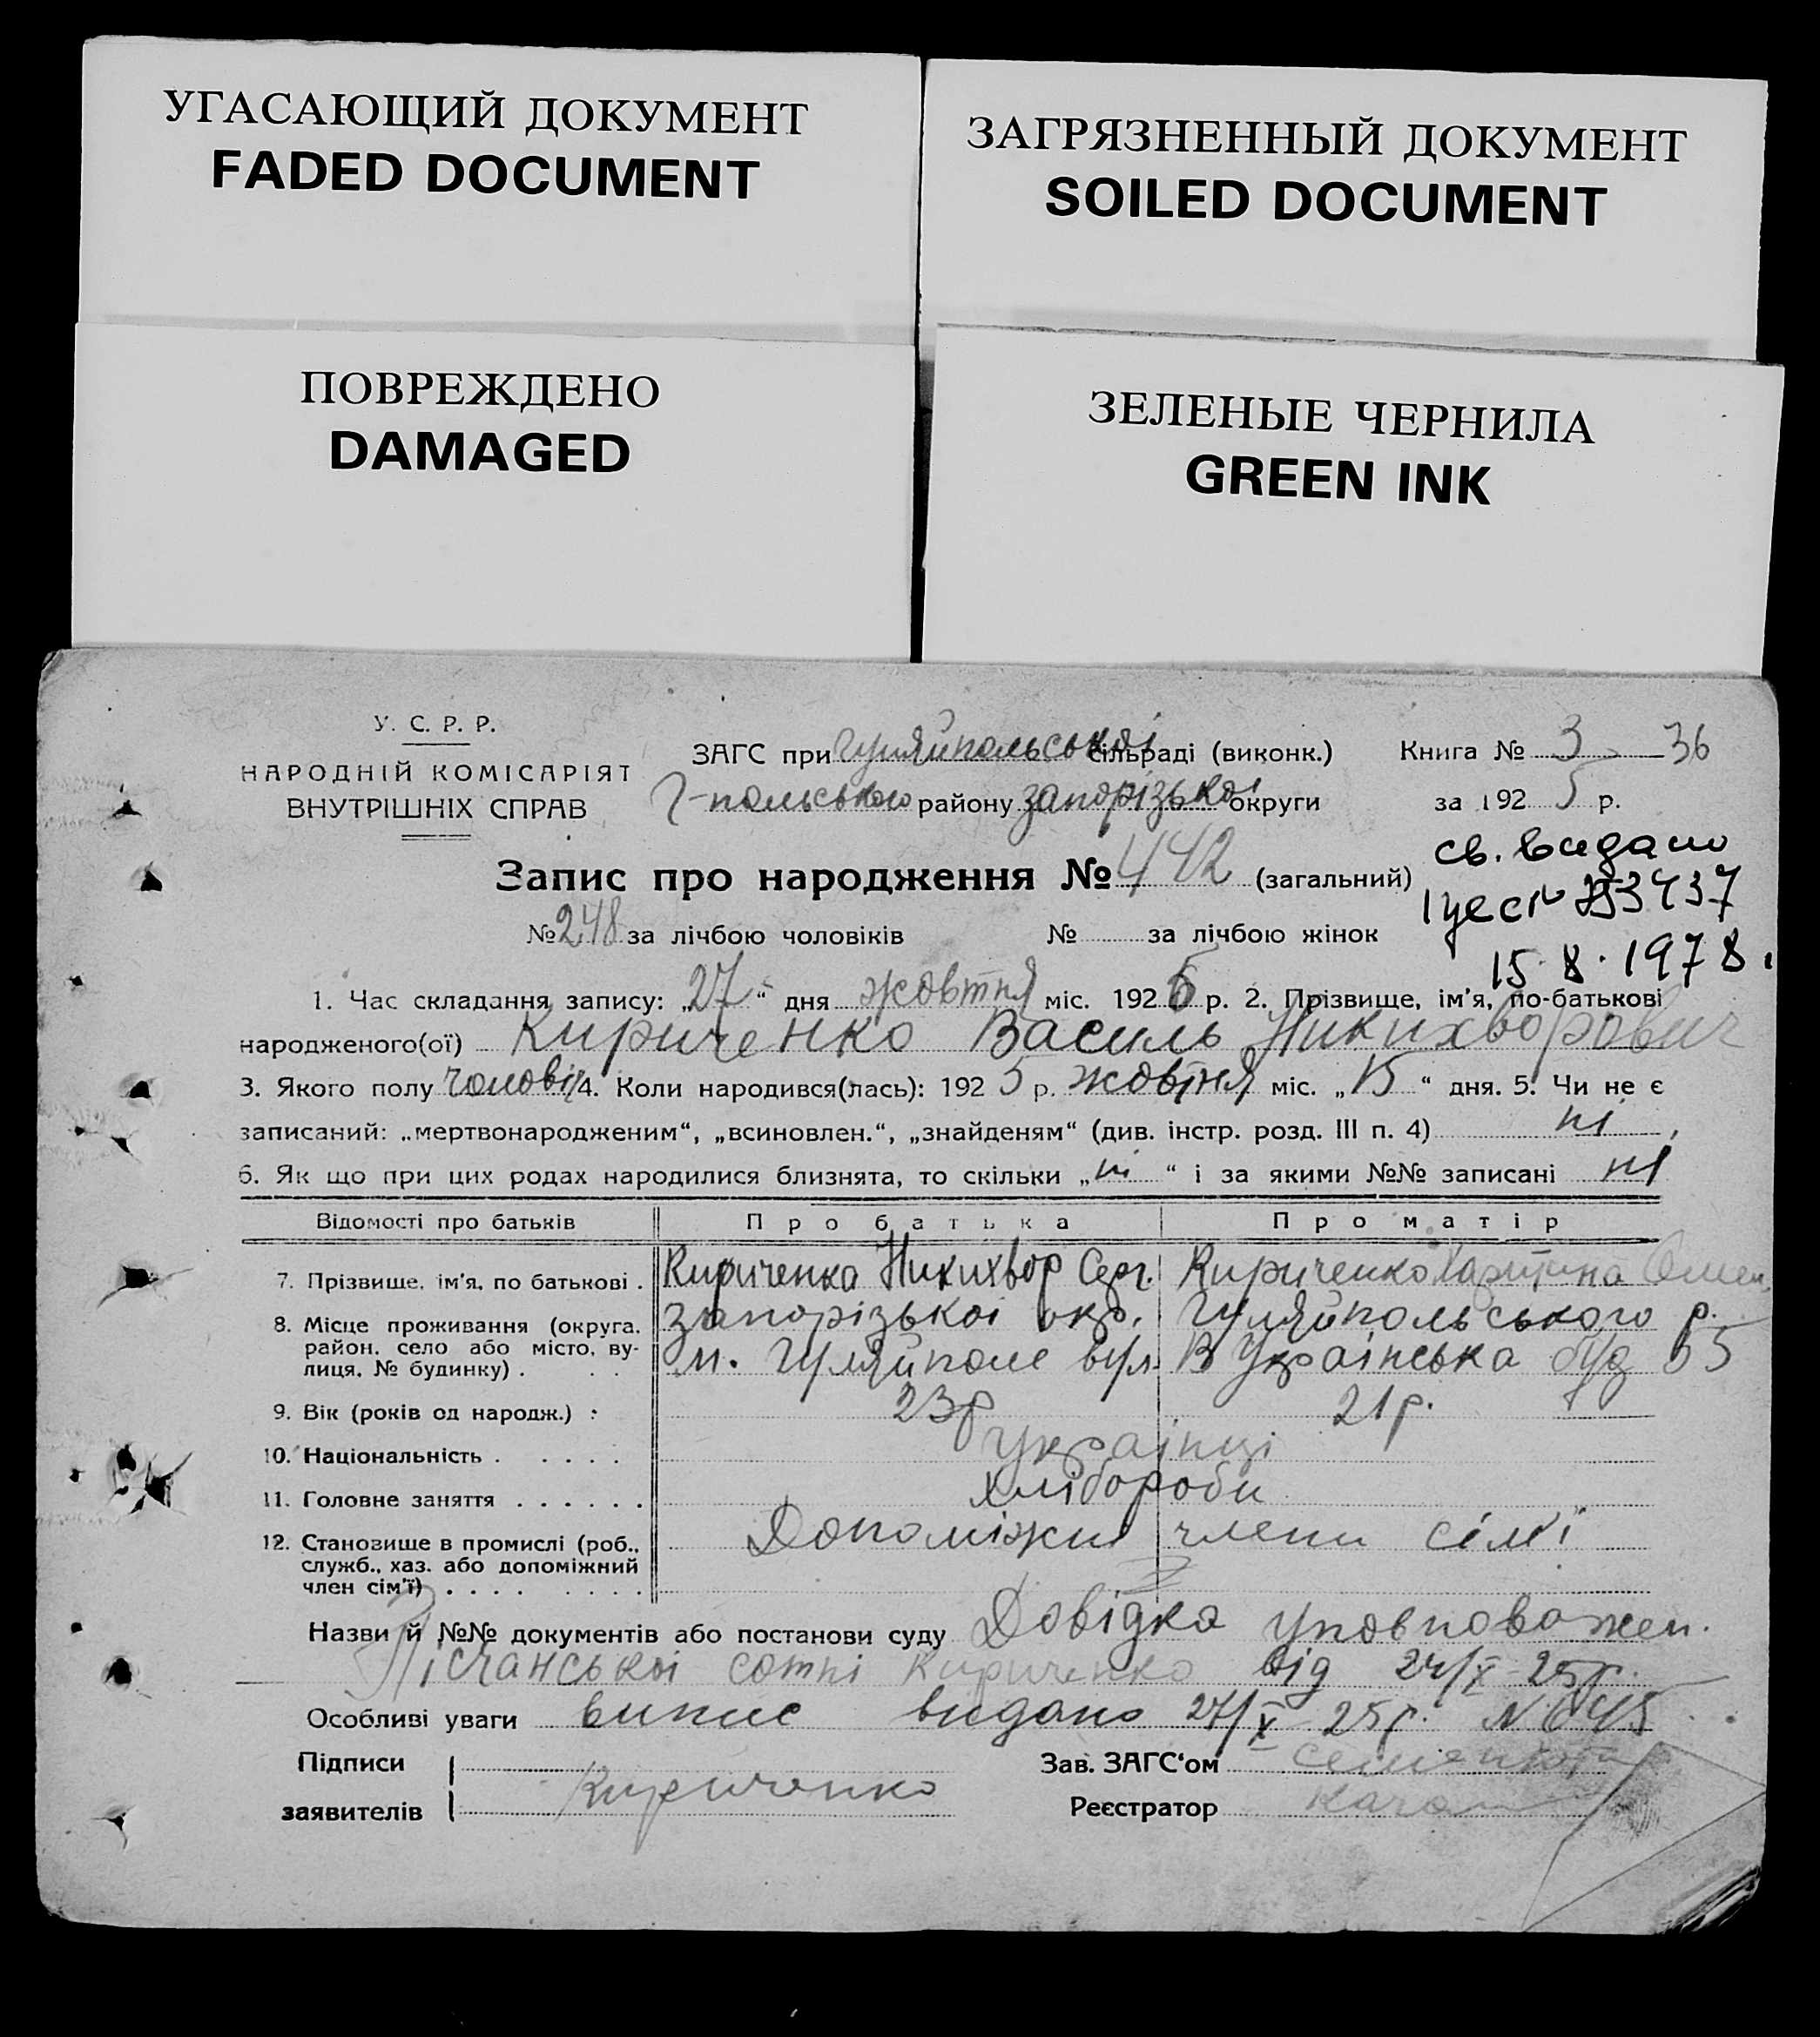 УГАСАЮЩИЙ ДОКУМЕНТ
FADED DOCUMENT
ЗАГРЯЗНЕННЫЙ ДОКУМЕНТ
SOILED DOCUMENT
ПОВРЕЖДЕНО
DAMAGED
ЗЕЛЕНЫЕ ЧЕРНИЛА
GREEN INK
У. С. Р. Р.
НАРОДНІЙ КОМІСАРІЯТ
ВНУТРІШНІХ СПРАВ
ЗАГС при Гуляйпольської сільраді (виконк.)
Г-польського району запорізької округи
Книга № 3 36
за 1925 р.
Запис про народження № 442 (загальний)
св. видано
15.8.1978.
№ 248 за лічбою чоловіків № за лічбою жінок
1. Час складання запису: „27“ дня жовтня міс. 1925 р. 2. Прізвище, ім’я, по-батькові
народженого(ої) Кириченко Василь Никихворович
3. Якого полу чоловіч 4. Коли народився(лась): 1925 р. жовтня міс. „15“ дня. 5. Чи не є
записаний: „мертвонародженим“, „всиновлен.“, „знайденям“ (див. інстр. розд. III п. 4) ні
6. Як що при цих родах народилися близнята, то скільки „ні“ і за якими №№ записані ні
Відомості про батьків Про батька Про матір
7. Прізвище, ім’я, по батькові . Кириченко Никихвор Серг. Кириченко Харитина Омел.
8. Місце проживання (округа, район, село або місто, вулиця, № будинку) . . . запорізької окр. Гуляйпольського р.
м. Гуляйполе вул. В Українська буд 55
9. Вік (років од народж.) : 23р 21р.
10. Національність . . . . . українці
11. Головне заняття . . . . . . хлібороби
12. Становище в промислі (роб., служб., хаз. або допоміжний член сім’ї) . . . . . . . . Допоміжні члени сім'ї
Назви й №№ документів або постанови суду Довідка уповноважен.
Пісчанської сотні Кириченко від 24/X-25р.
Особливі уваги випис видано 27/X 25р. N 645
Підписи
заявителів
Кириченко
Зав. ЗАГС‘ом
Реєстратор